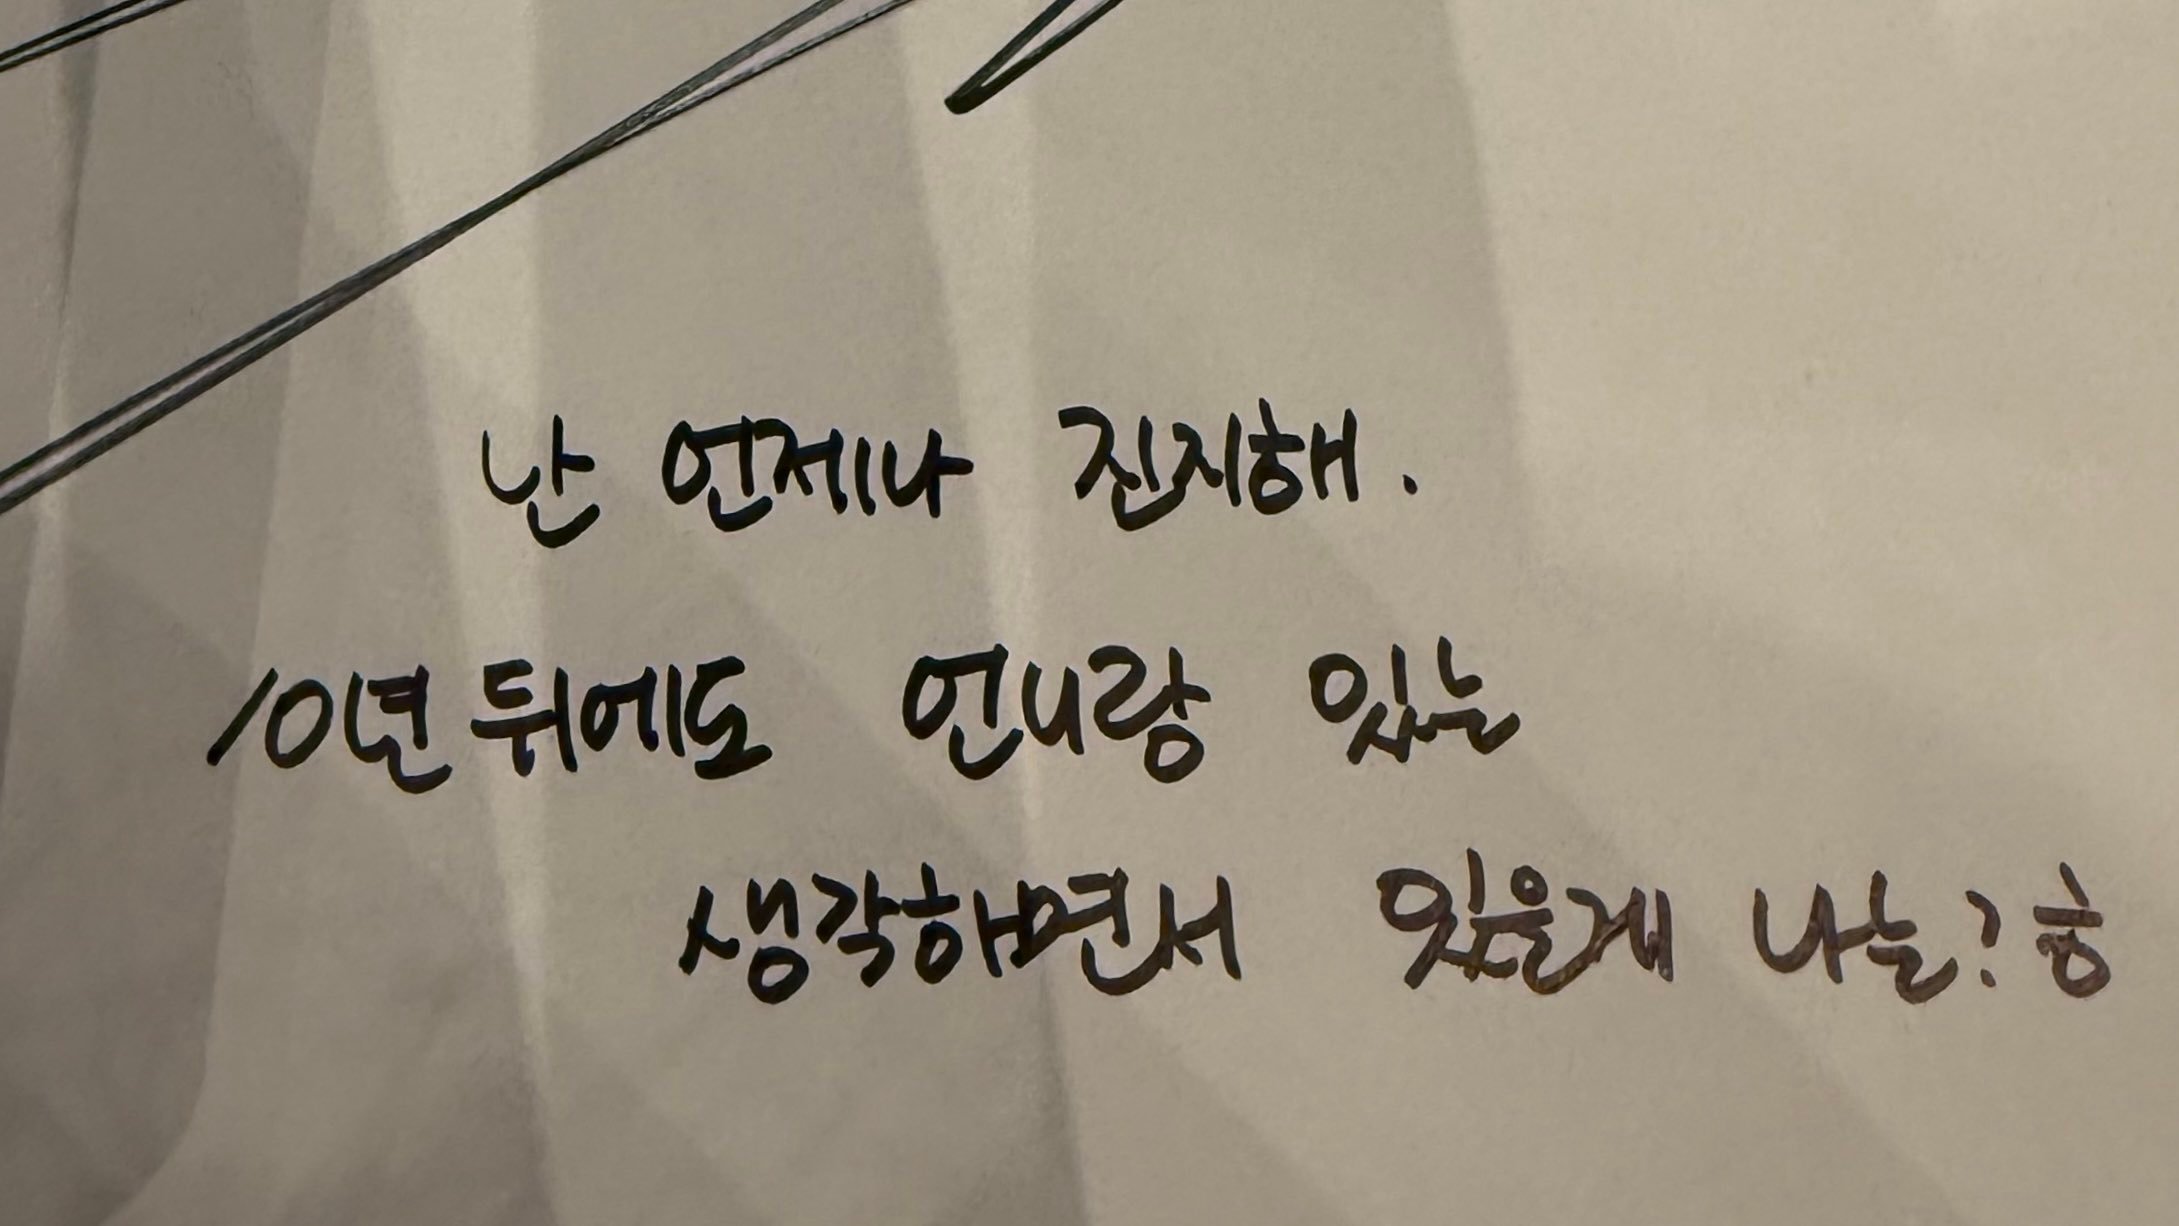 난 언제나 진지해.
10년 뒤에도 언니랑 있는
생각하면서 있을게 나는? ㅎ